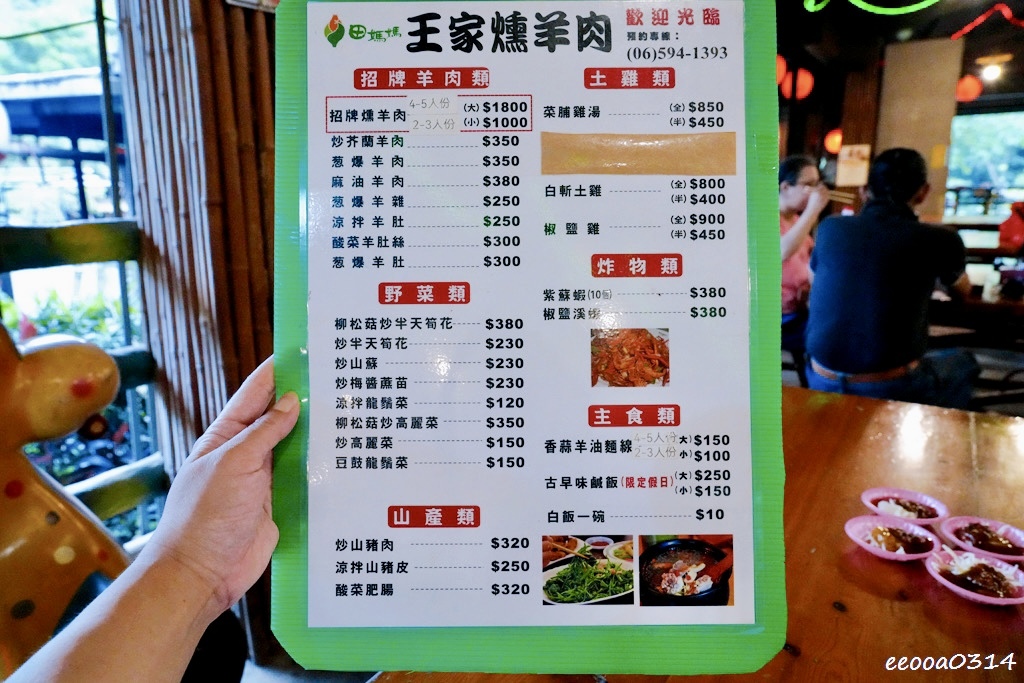 田媽媽 王家燻羊肉 歡迎光臨
預約專線：
(06)594-1393
招牌羊肉類
招牌燻羊肉 4-5人份 (大) $1800
2-3人份 (小) $1000
炒芥蘭羊肉 $350
葱爆羊肉 $350
麻油羊肉 $380
葱爆羊雜 $250
涼拌羊肚 $250
酸菜羊肚絲 $300
葱爆羊肚 $300
野菜類
柳松菇炒半天筍花 $380
炒半天筍花 $230
炒山蘇 $230
炒梅醬蕨苗 $230
涼拌龍鬚菜 $120
柳松菇炒高麗菜 $350
炒高麗菜 $150
豆鼓龍鬚菜 $150
山產類
炒山豬肉 $320
涼拌山豬皮 $250
酸菜肥腸 $320
土雞類
菜脯雞湯 (全) $850
(半) $450
白斬土雞 (全) $800
(半) $400
椒鹽雞 (全) $900
(半) $450
炸物類
紫蘇蝦(10個) $380
椒鹽溪 $380
主食類
香蒜羊油麵線 4-5人份 大) $150
2-3人份 小) $100
古早味鹹飯(限定假日) (大) $250
(小) $150
白飯一碗 $10
eeooa0314